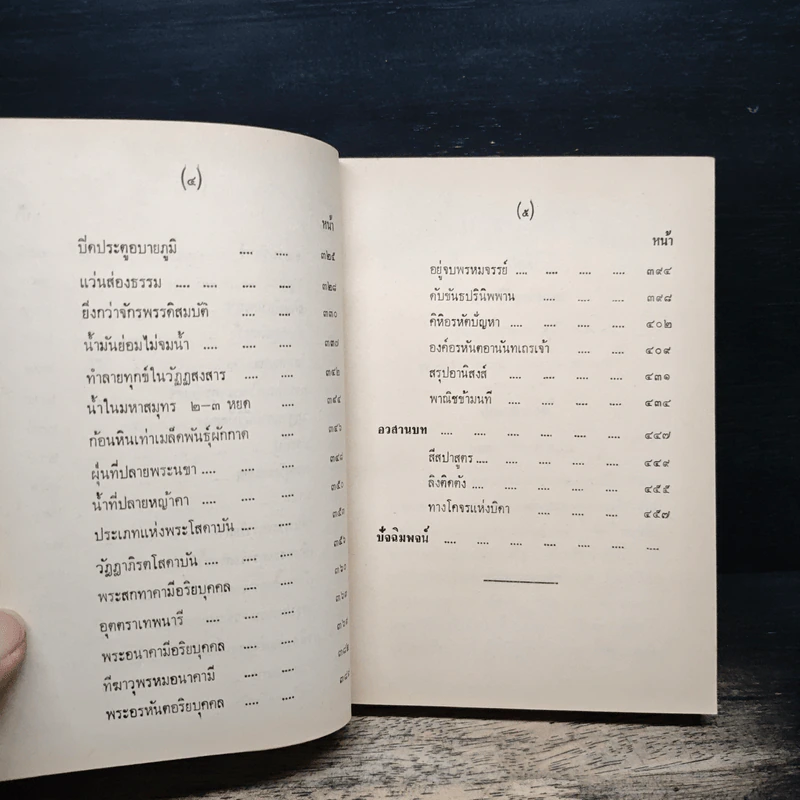 (๔)
หน้า
ปิดประตูอบายภูมิ .... .... ๓๒๕
แว่นส่องธรรม .... .... .... .... ๓๒๘
ยิ่งกว่าจักรพรรดิสมบัติ .... .... ๓๓๐
น้ำมันย่อมไม่จมน้ำ .... .... .... ๓๓๗
ทำลายทุกข์ในวัฏฏสงสาร .... .... ๓๔๒
น้ำในมหาสมุทร ๒–๓ หยด ....
ก้อนหินเท่าเมล็ดพันธุ์ผักกาด .... ๓๔๖
ฝุ่นที่ปลายพระนขา .... .... .... ๓๔๘
น้ำที่ปลายหญ้าคา .... .... ๓๕๐
ประเภทแห่งพระโสดาบัน .... .... ๓๕๓
วัฏฏาภิรตโสดาบัน .... .... ๓๕๖
พระสกทาคามีอริยบุคคล .... .... ๓๖๐
อุตตราเทพนารี .... .... ....
พระอนาคามีอริยบุคคล .... ....
ทีฆาวุพรหมอนาคามี .... .... ๓๘๒
พระอรหันตอริยบุคคล .... ....
(๕)
หน้า
อยู่จบพรหมจรรย์ .... .... .... .... ๓๙๔
ดับขันธปรินิพพาน .... .... .... ๓๙๘
คิหิอรหัตปัญหา .... .... .... .... ๔๐๒
องค์อรหันตอานันทเถรเจ้า .... .... ๔๐๙
สรุปอานิสงส์ .... .... .... .... ๔๓๑
พาณิชข้ามนที .... .... .... .... ๔๓๔
อวสานบท .... .... .... .... .... .... ๔๔๗
สีสปาสูตร .... .... .... .... .... ๔๔๙
ลิงติดตัง .... .... .... .... .... ๔๕๕
ทางโคจรแห่งบิดา .... .... .... .... ๔๕๗
ปัจฉิมพจน์ .... .... .... .... .... .... ....